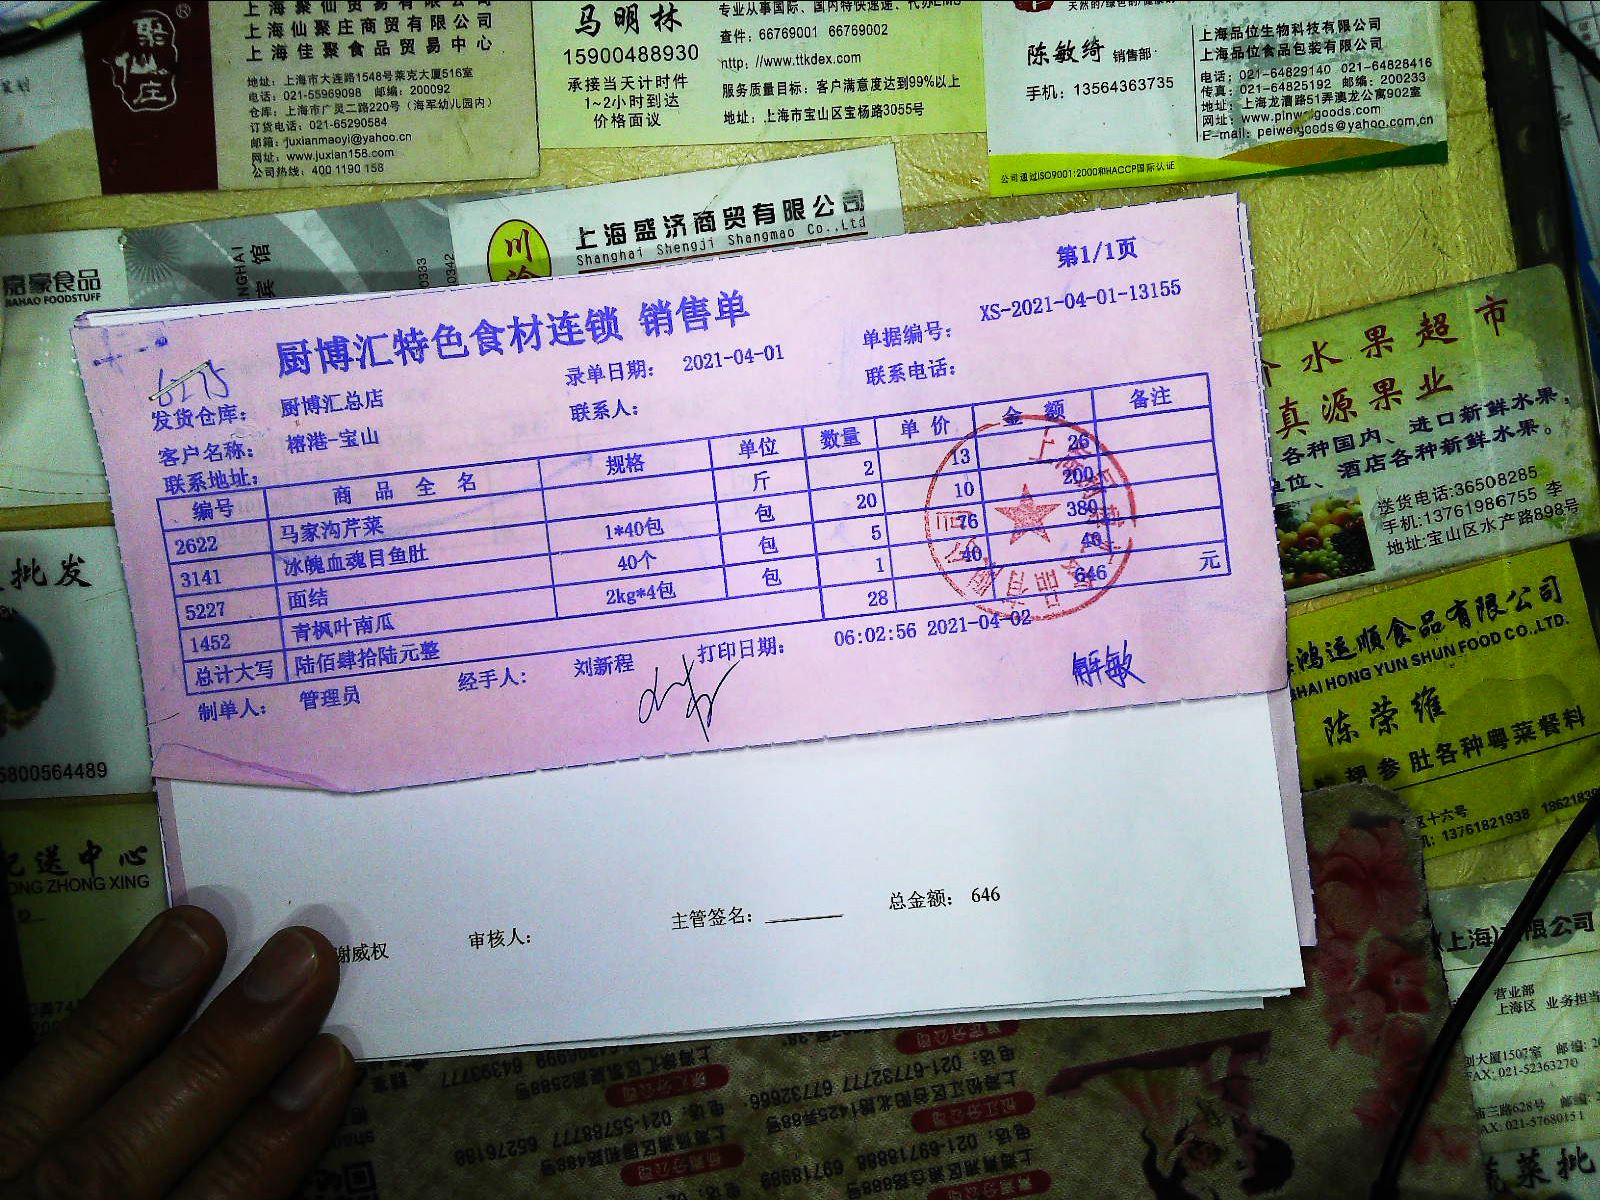 上海聚仙贸易有限公司
上海仙聚庄商贸有限公司
上海佳聚食品贸易中心
聚仙庄
地址：上海市大连路1548号莱克大厦516室
电话：021-55969098 邮编：200092
仓库：上海市广灵二路220号（海军幼儿园内）
订货电话：021-65290584
邮箱：juxianmaoyi@yahoo.cn
网址：www.juxian158.com
公司热线：400 1190 158
马明林
15900488930
承接当天计时件
1~2小时到达
价格面议
专业从事国际、国内特快速递、代办EMS
查件：66769001 66769002
http：//www.ttkdex.com
服务质量目标：客户满意度达到99%以上
地址：上海市宝山区宝杨路3055号
陈敏绮 销售部
手机：13564363735
上海品位生物科技有限公司
上海品位食品包装有限公司
电话：021-64829140 021-64828416
传真：021-64825192 邮编：200233
地址：上海龙漕路51弄澳龙公寓902室
网址：www.pinweigoods.com
E-mail：peiweigoods@yahoo.com.cn
公司通过ISO9001:2000和HACCP国际认证
上海盛济商贸有限公司
Shanghai Shengji Shangmao Co.,Ltd
嘉豪食品
JIAHAO FOODSTUFF
第1/1页
厨博汇特色食材连锁 销售单
XS-2021-04-01-13155
单据编号：
录单日期： 2021-04-01
联系电话：
6275
发货仓库： 厨博汇总店
联系人：
客户名称： 榕港-宝山
联系地址：
编号 商品全名 规格 单位 数量 单价 金额 备注
2622 马家沟芹菜 斤 2 13 26
3141 冰魄血魂目鱼肚 1*40包 包 20 10 200
5227 面结 40个 包 5 76 380
1452 青枫叶南瓜 2kg*4包 包 1 40 40
总计大写 陆佰肆拾陆元整 28 646 元
制单人： 管理员 经手人： 刘新程 打印日期： 06:02:56 2021-04-02
解敏
谢威权 审核人： 主管签名： 总金额： 646
水果超市
真源果业
各种国内、进口新鲜水果，
单位、酒店各种新鲜水果。
送货电话:36508285
手机:13761986755 李
地址:宝山区水产路898号
鸿运顺食品有限公司
HAI HONG YUN SHUN FOOD CO.,LTD.
陈荣维
翅参肚各种粤菜餐料
区十六号
13761821938
批发
5800564489
配送中心
ONG ZHONG XING
(上海)有限公司
营业部
上海区 业务担当
创大厦1507室 邮编:
FAX: 021-52363270
宙三路628号 邮编:
AX: 021-57680151
蔬菜批